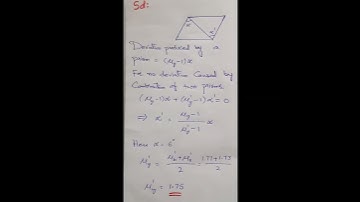 Sol:
α
α'
Deviation produced by a
prism = (μy-1)α
For no deviation caused by
Combination of two prisms
(μy-1)α + (μ'y-1)α' = 0
⇒ α' = μy-1 / μ'y-1 α
Here α = 6°
μ'y = μ'v + μ'R / 2 = 1.77+1.73 / 2
μ'y = 1.75